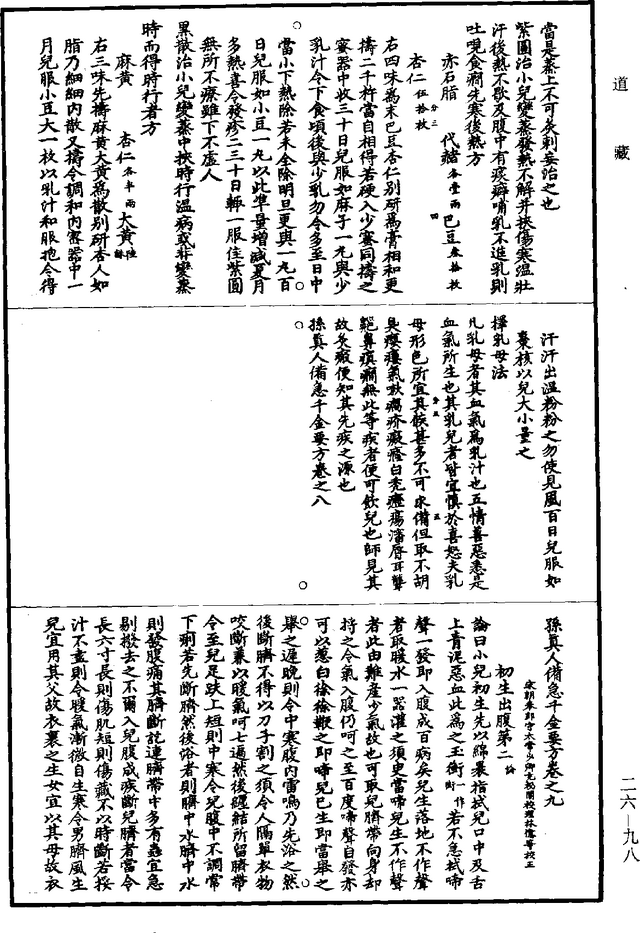 道藏
當是蒸上不可灸刺妄治之也
紫圓治小兒變蒸發熱不解并挾傷寒溫壯
汗後熱不歇及腹中有痰癖哺乳不進乳則
吐哯食癇先寒後熱方
赤石脂 代赭各壹兩 巴豆叁拾枚
杏仁伍拾枚
右四味為末巴豆杏仁別研為膏相和更
擣二千杵當自相得若硬入少蜜同擣之
蜜器中收三十日兒服如麻子一丸與少
乳汁令下食頃後與少乳勿令多至日中
當小下熱除若未全除明旦更與一丸百
日兒服如小豆一丸以此準量增減夏月
多熱喜令發疹二三十日輒一服佳紫圓
無所不療雖下不虛人
黑散治小兒變蒸中挾時行溫病或非變蒸
時而得時行者方
麻黃 杏仁各半兩 大黃陸銖
右三味先擣麻黃大黃為散別研杏人如
脂乃細細內散又擣令調和內密器中一
月兒服小豆大一枚以乳汁和服抱令得
汗汗出溫粉粉之勿使見風百日兒服如
棗核以兒大小量之
擇乳母法
凡乳母者其血氣為乳汁也五情善惡悉是
血氣所生也其乳兒者皆宜慎於喜怒夫乳
母形色所宜其候甚多不可求備但取不胡
臭癭瘻氣嗽瘑疥癡癃白禿癧瘍瀋唇耳聾
齆鼻癲癇無此等疾者便可飲兒也師見其
故灸瘢便知其先疾之源也
孫真人備急千金要方卷之八
孫真人備急千金要方卷之九
宋朝奉郎守太常少卿充秘閣校理林億等校正
初生出腹第二論
論曰小兒初生先以綿裹指拭兒口中及舌
上青泥惡血此為之玉衡一作銜若不急拭啼
聲一發即入腹成百病矣兒生落地不作聲
者取暖水一器灌之須臾當啼兒生不作聲
者此由難產少氣故也可取兒臍帶向身却
捋之令氣入腹仍呵之至百度啼聲自發亦
可以蔥白徐徐鞭之即啼兒已生即當舉之
舉之遲晚則令中寒腹內雷鳴乃先浴之然
後斷臍不得以刀子割之須令人隔單衣物
咬斷兼以暖氣呵七遍然後纏結所留臍帶
令至兒足趺上短則中寒令兒腹中不調常
下痢若先斷臍然後浴者則臍中水臍中水
則發腹痛其臍斷訖連臍帶中多有蟲宜急
剔撥去之不爾入兒腹成疾斷兒臍者當令
長六寸長則傷肌短則傷藏不以時斷若挼
汁不盡則令暖氣漸微自生寒令男臍風生
兒宜用其父故衣裹之生女宜以其母故衣
二六—九八